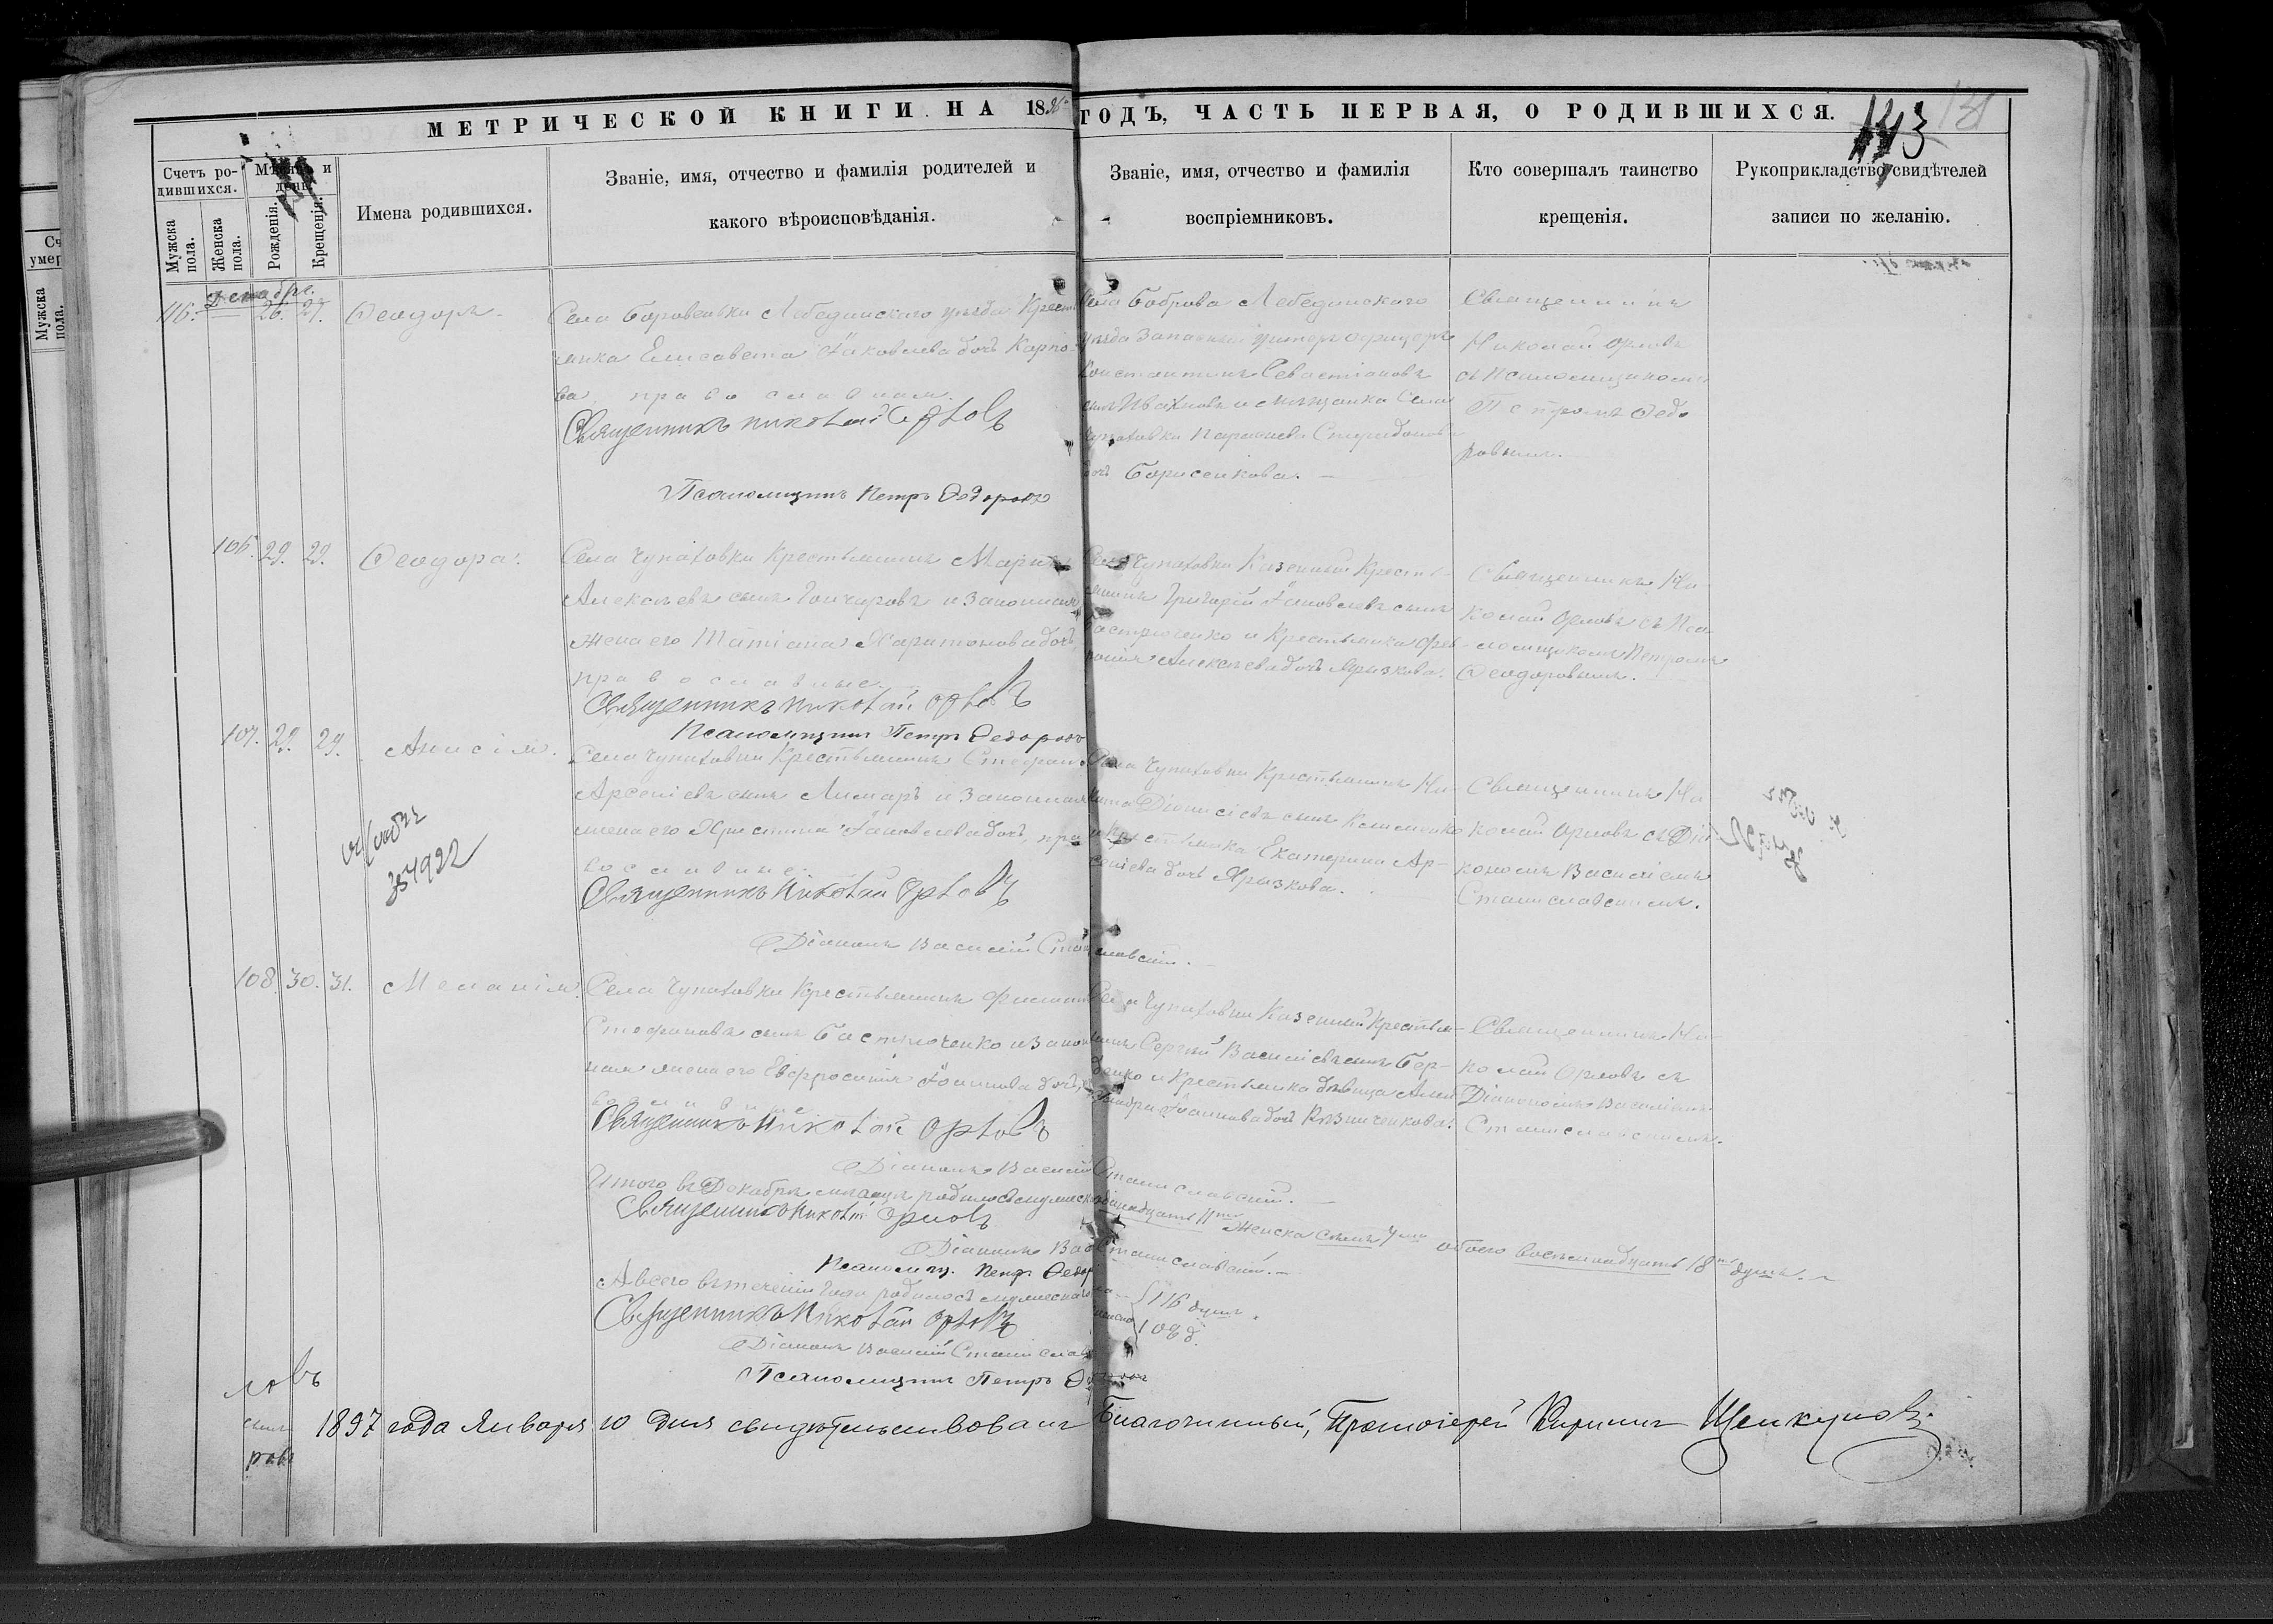 МЕТРИЧЕСКОЙ КНИГИ НА 1896 ГОДЪ, ЧАСТЬ ПЕРВАЯ, О РОДИВШИХСЯ.
143
Счетъ ро-
дившихся.
Мѣсяцъ и
день.
Мужска
пола.
Женска
пола.
Рожденія.
Крещенія.
Имена родившихся.
Званіе, имя, отчество и фамилія родителей и
какого вѣроисповѣданія.
Званіе, имя, отчество и фамилія
воспріемниковъ.
Кто совершалъ таинство
крещенія.
Рукоприкладство свидѣтелей
записи по желанію.
Декабрь.
116. 26. 27. Ѳеодоръ
Села Боровеньки Лебединскаго уѣзда Крестья
янка Елисавета Іаковлева дочь Карпо-
ва, православная.
Священникъ Николай Орловъ
Псаломщикъ Петръ Ѳедоровъ
Села Боброва Лебединскаго
уѣзда Запасный унтеръ офицеръ
Константинъ Севастіановъ
сынъ Ивахновъ и мѣщанка Села
Чупаховки Параскева Спиридонова
дочь Борисенкова.
Священникъ
Николай Орловъ
съ Псаломщикомъ
Петромъ Ѳедо
ровымъ.
106. 29. 29. Ѳеодора.
Села Чупаховки Крестьянинъ Марк
Алексѣевъ сынъ Гончаровъ и законная
жена его Татіана Харитонова дочь,
православные.
Священникъ Николай Орловъ
Псаломщикъ Петръ Ѳедоровъ
Села Чупаховки Казенный Кресть-
янинъ Григорій Іаковлевъ сынъ
Бастрюченко и Крестьянка Фев-
ронія Алексѣева дочь Ярызкова.
Священникъ Ни-
колай Орловъ съ Пса-
ломщикомъ Петромъ
Ѳеодоровымъ.
107. 29. 29. Анисія.
Села Чупаховки Крестьянинъ Стефанъ
Арсеніевъ сынъ Лимаръ и законная
жена его Христина Іаковлева дочь, пра
вославные.
Священникъ Николай Орловъ
Діаконъ Василій Станиславскій.
Села Чупаховки Крестьянинъ Ни-
кита Діонисіевъ сынъ Клименко
и Крестьянка Екатерина Ар-
сеніева дочь Ярызкова.
Священникъ Ни
колай Орловъ съ Діа-
кономъ Василіемъ
Станиславскимъ.
354922
108. 30. 31. Меланія.
Села Чупаховки Крестьянинъ Филиппъ
Стефановъ сынъ Бастрюченко и закон
ная жена его Евфросинія Іоаннова дочь,
вославные.
Священникъ Николай Орловъ
Діаконъ Василій Станиславскій.
Села Чупаховки Казенный Крестья-
нинъ Сергѣй Василіевъ сынъ Бер-
денко и Крестьянка дѣвица Алек
сандра Іоаннова дочь Рѣзниченкова.
Священникъ Ни-
колай Орловъ съ
Діакономъ Василіемъ
Станиславскимъ.
Итого въ Декабрѣ мѣсяцѣ родилось мужеска одиннадцать 11 женска семь 7 обоего восемнадцать 18 душъ.
Священникъ Николай Орловъ
Діаконъ Вас Станиславскій.
Псаломщ. Петръ Ѳедор
А всего въ теченіи года родилось мужеска пола 116 душъ.
женска 108 д.
Священникъ Николай Орловъ
Діаконъ Василій Станислав
Псаломщикъ Петръ Ѳедоровъ
ловъ
ровъ
1897 года Января 10 дня свидѣтельствовалъ Благочинный, Протоіерей Кириллъ Щелкуновъ.
Сч
умер
Мужска
пола.